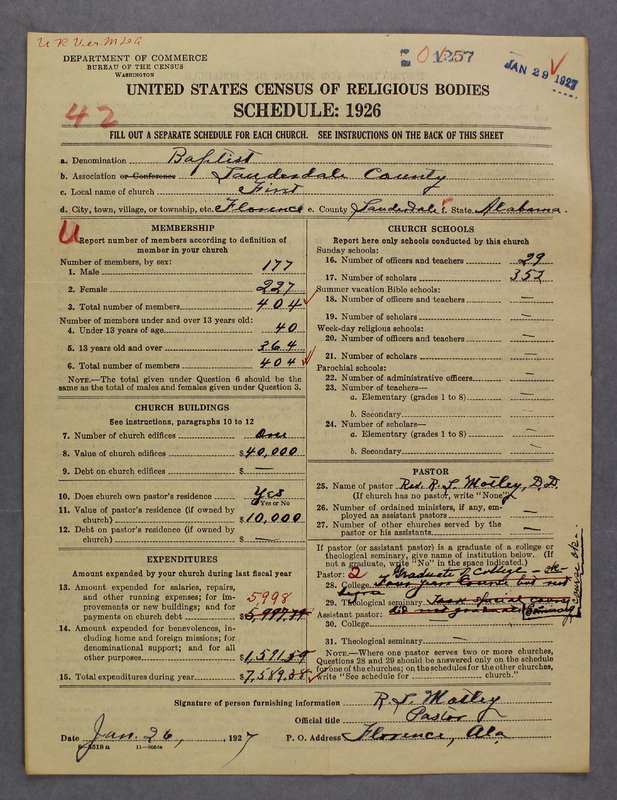 DEPARTMENT OF COMMERCE
BUREAU OF THE CENSUS
WASHINGTON
1257
JAN 29 1927
UNITED STATES CENSUS OF RELIGIOUS BODIES
SCHEDULE: 1926
42
FILL OUT A SEPARATE SCHEDULE FOR EACH CHURCH. SEE INSTRUCTIONS ON THE BACK OF THIS SHEET
a. Denomination Baptist
b. Association or Conference Lauderdale County
c. Local name of church First
d. City, town, village, or township, etc. Florence e. County Lauderdale f. State Alabama.
U
MEMBERSHIP
Report number of members according to definition of
member in your church
Number of members, by sex:
1. Male 177
2. Female 227
3. Total number of members 404
Number of members under and over 13 years old:
4. Under 13 years of age 40
5. 13 years old and over 364
6. Total number of members 404
NOTE.—The total given under Question 6 should be the
same as the total of males and females given under Question 3.
CHURCH BUILDINGS
See instructions, paragraphs 10 to 12
7. Number of church edifices One
8. Value of church edifices $40,000
9. Debt on church edifices $ —
10. Does church own pastor's residence Yes
Yes or No
11. Value of pastor's residence (if owned by
church) $10,000
12. Debt on pastor's residence (if owned by
church) $ —
EXPENDITURES
Amount expended by your church during last fiscal year
13. Amount expended for salaries, repairs,
and other running expenses; for im-
provements or new buildings; and for
payments on church debt 5,998
$5,997.79
14. Amount expended for benevolences, in-
cluding home and foreign missions; for
denominational support; and for all
other purposes $1,591.59
15. Total expenditures during year $7,589.38
CHURCH SCHOOLS
Report here only schools conducted by this church
Sunday schools:
16. Number of officers and teachers 29
17. Number of scholars 352
Summer vacation Bible schools:
18. Number of officers and teachers —
19. Number of scholars —
Week-day religious schools:
20. Number of officers and teachers —
21. Number of scholars —
Parochial schools:
22. Number of administrative officers —
23. Number of teachers—
a. Elementary (grades 1 to 8) —
b. Secondary —
24. Number of scholars—
a. Elementary (grades 1 to 8) —
b. Secondary —
PASTOR
25. Name of pastor Rev. R. L. Motley, D.D.
(If church has no pastor, write "None")
26. Number of ordained ministers, if any, em-
ployed as assistant pastors —
27. Number of other churches served by the
pastor or his assistants —
If pastor (or assistant pastor) is a graduate of a college or
theological seminary, give name of institution below. (If
not a graduate, write "No" in the space indicated.)
Pastor: 2 Graduate
28. College
29. Theological seminary
Assistant pastor:
30. College
31. Theological seminary —
NOTE.—Where one pastor serves two or more churches,
Questions 28 and 29 should be answered only on the schedule
for one of the churches; on the schedules for the other churches,
write "See schedule for church."
Signature of person furnishing information R. L. Motley
Official title Pastor
Date Jan. 26, , 1927 P. O. Address Florence, Ala
8-1518a